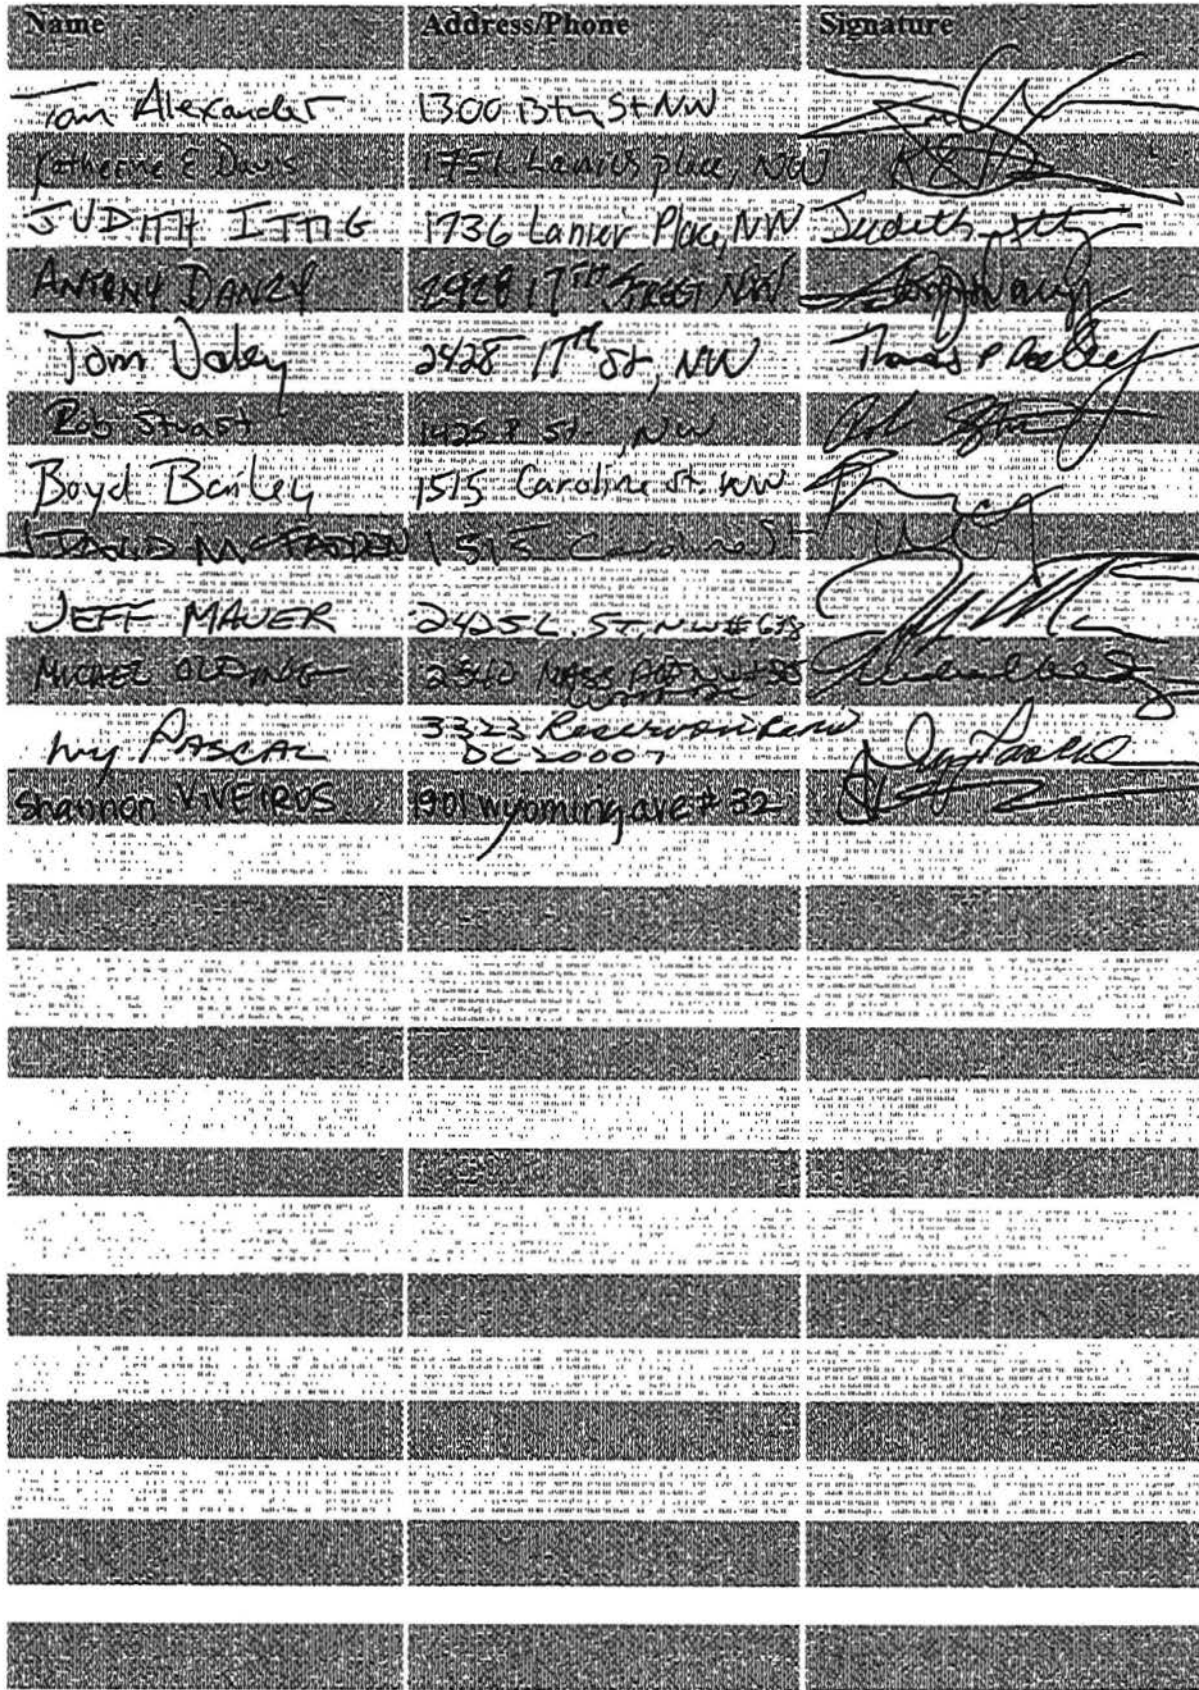 Name Address/Phone Signature
Tom Alexander 1300 13th St NW
Katherine E Davis 1751 Lanier place, NW KED
JUDITH ITTIG 1736 Lanier Place, NW Judith Ittig
ANTONY DANZY 2929 17TH STREET NW
Tom Daley 2428 17th St, NW Thomas P Daley
Rob Stuart St., NW Rob
Boyd Bailey 1515 Caroline St. NW
DAVID MCFADDEN 1515 Caroline St
JEFF MAUER 2425 L. ST. NW #638
MICHAEL OLDING MASS AVE NW
Ivy PASCAL 3323 Reservoir Road Ivy Pascal
DC 20007
Shannon VIVEIROS 1901 wyoming ave # 32